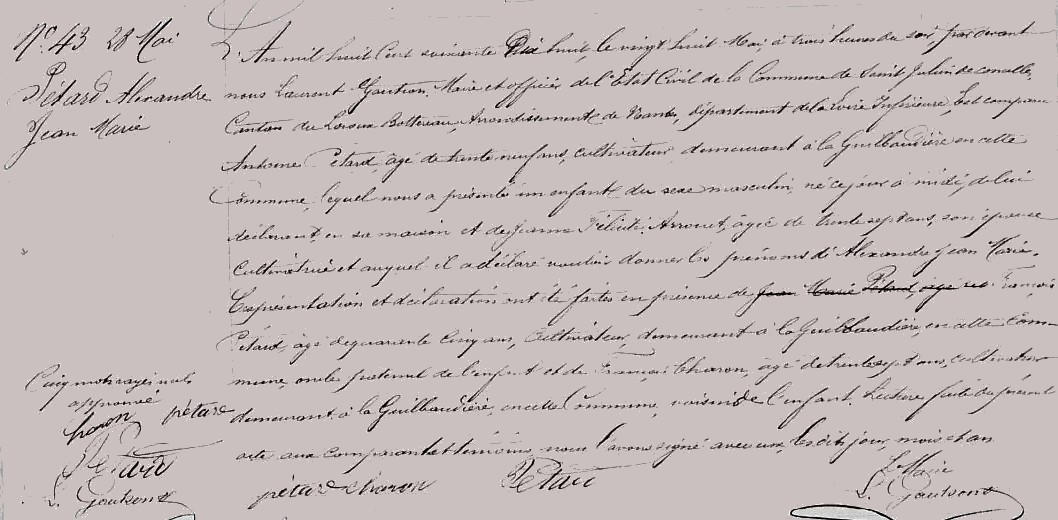 N° 43 28 Mai
Pétard Alexandre
Jean Marie
L'An mil huit cent soixante Dix huit, le vingt huit Mai, à trois heures du soir, par devant
nous Laurent Gautron, Maire et officier de l'Etat Civil de la Commune de Saint Julien de concelles,
Canton du Loroux Bottereau, Arrondissement de Nantes, département de la Loire Inférieure, Est comparu
Antoine Pétard, âgé de trente neuf ans, cultivateur, demeurant à la Guilbaudière en cette
Commune, lequel nous a présenté un enfant du sexe masculin, né ce jour à midi, de lui
déclarant, en sa maison et de Jeanne Félicité Arrouet, âgée de trente sept ans, son épouse
Cultivatrice et auquel il a déclaré vouloir donner les prénoms d'Alexandre Jean Marie.
Ces présentation et déclaration ont été faites en présence de Jean Marie Pétard, âgé de François
Pétard, âgé de quarante cinq ans, Cultivateur, demeurant à la Guilbaudière, en cette Com-
mune, oncle paternel de l'enfant et de François Charon, âgé de trente sept ans, cultivateur
demeurant à la Guilbaudière, en cette Commune, voisin de l'enfant. Lecture faite du présent
acte aux comparant et témoins, nous l'avons signé avec eux, les dits jour, mois et an
Cinq mots rayés nuls
approuvé
charon pétard
Pétard
L. Gautron
pétard charon Pétard
L. Maire
L. Gautron